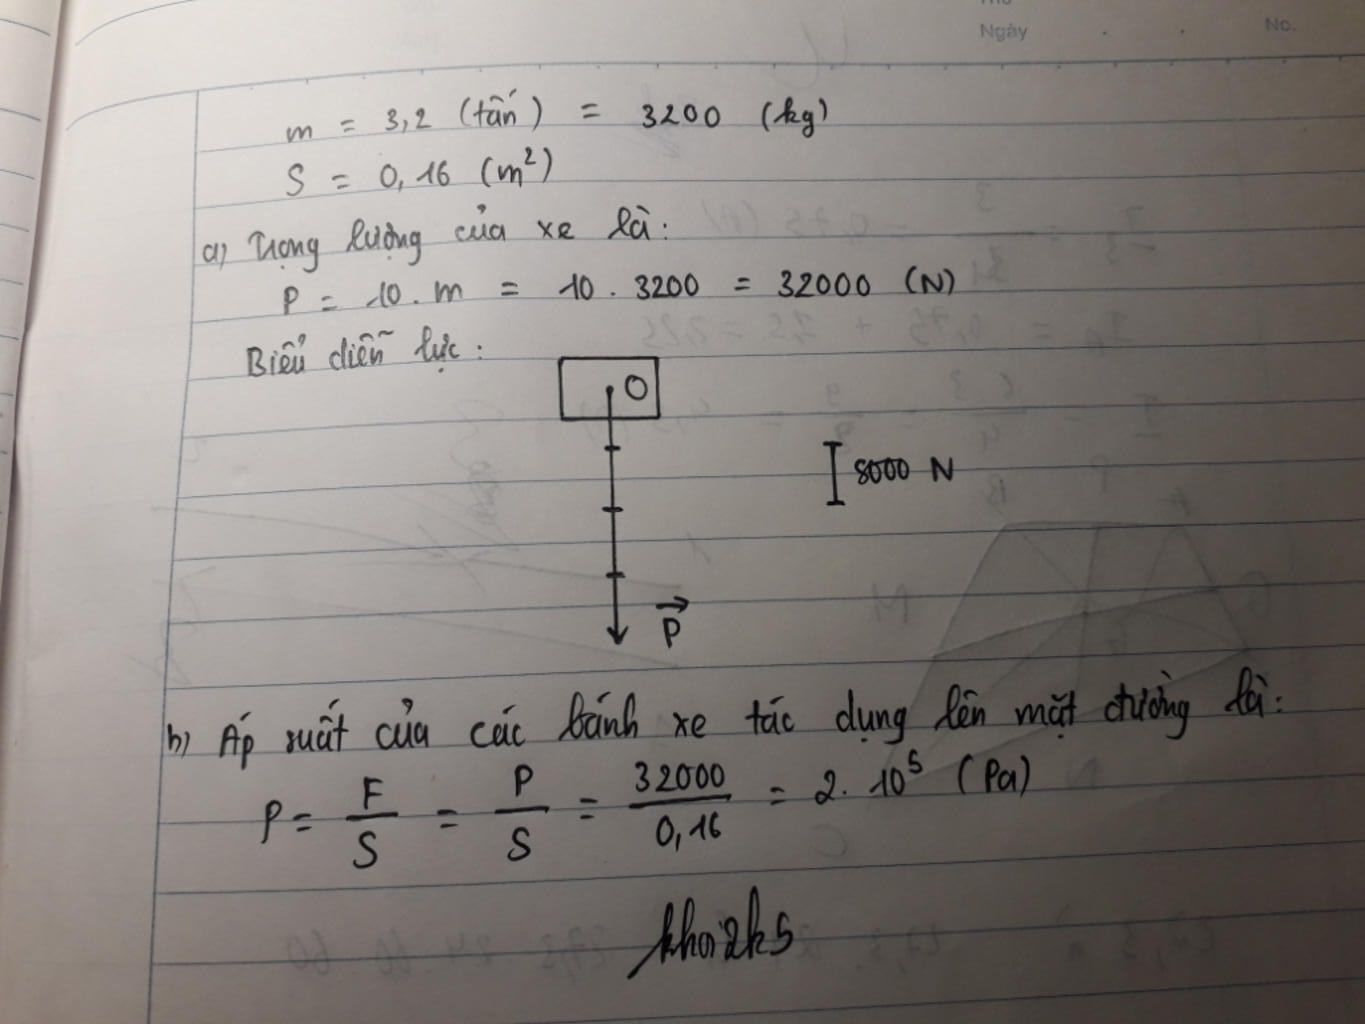 Thứ
Ngày
No.
m = 3,2 (tấn) = 3200 (kg)
S = 0,16 (m²)
a) Trọng lượng của xe là:
P = 10. m = 10 . 3200 = 32000 (N)
Biểu diễn lực:
O
8000 N
P⃗
b) Áp suất của các bánh xe tác dụng lên mặt đường là:
P = F/S = P/S = 32000/0,16 = 2. 10⁵ (Pa)
khoi2k5